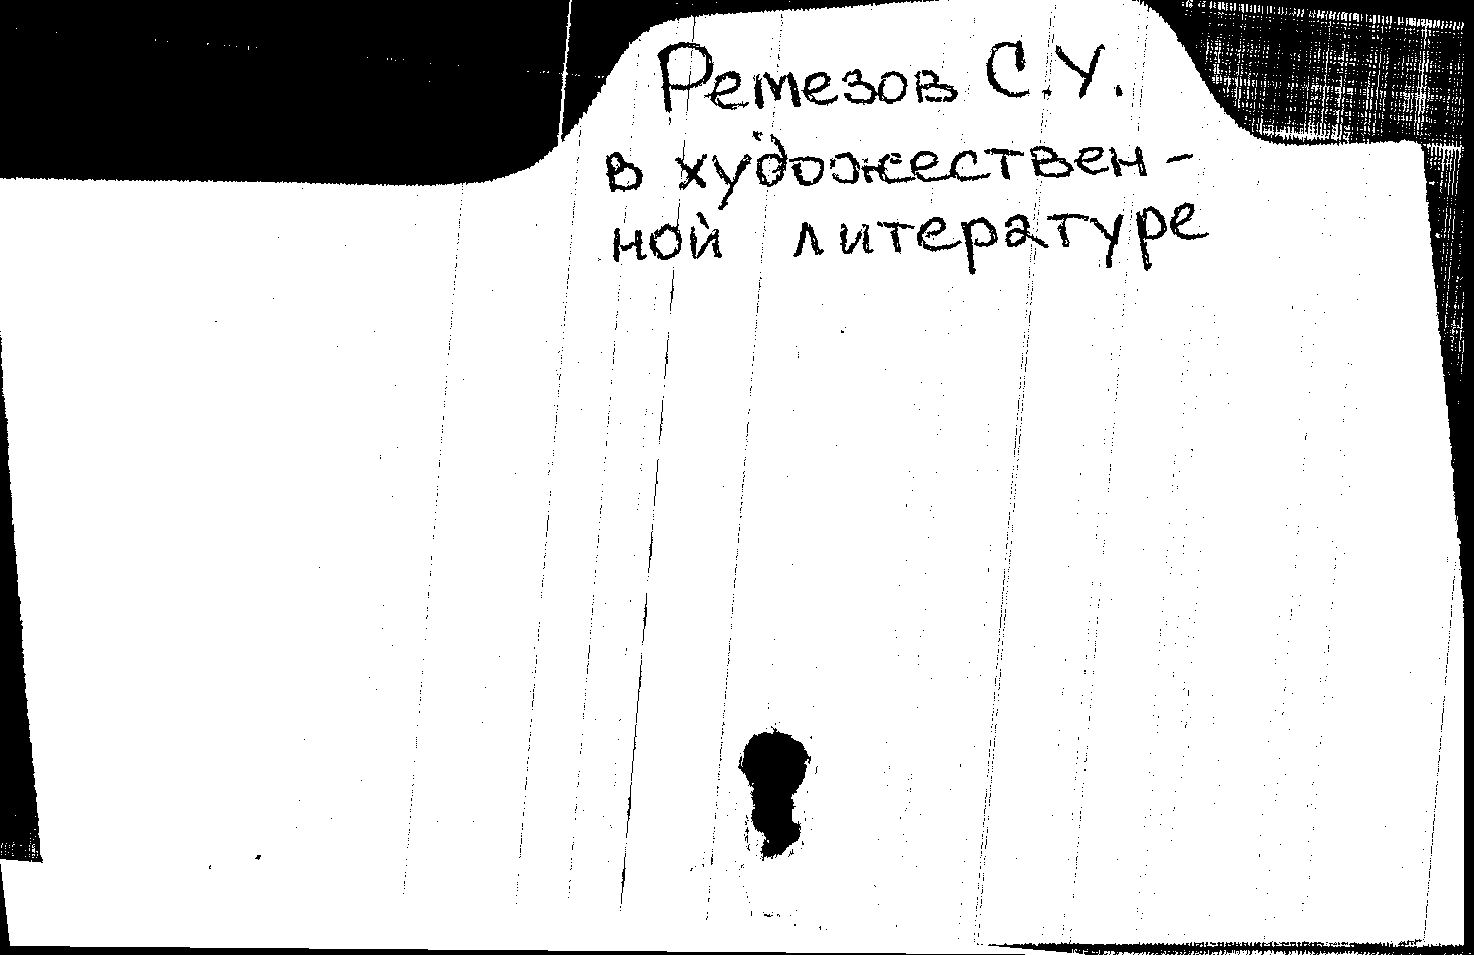 Ремезов С.У.
в художествен-
ной литературе